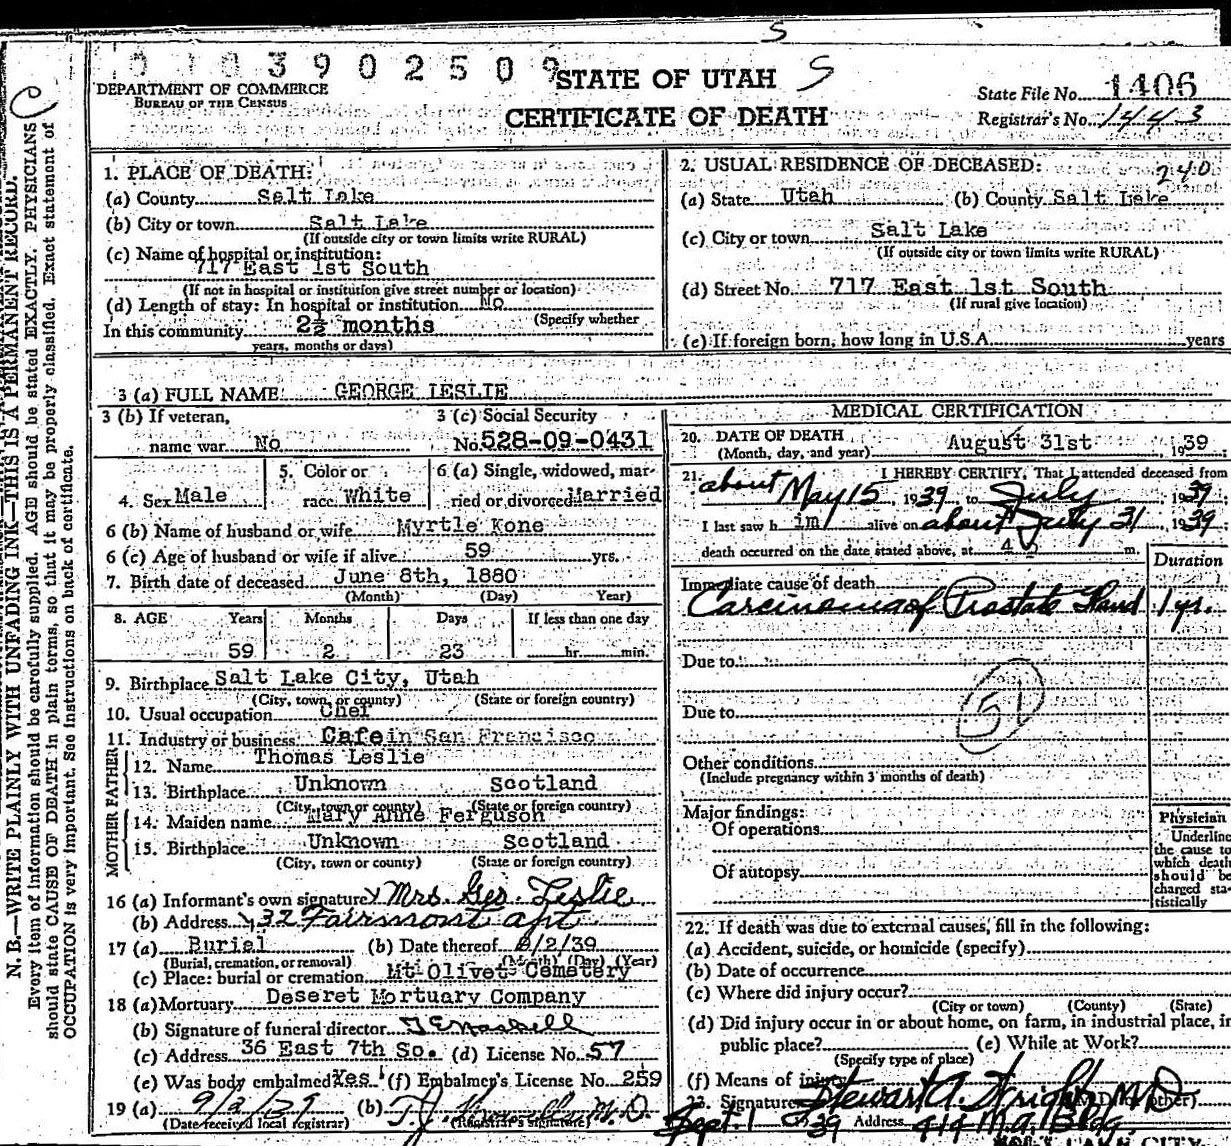 S
0 1 0 3 9 0 2 5 0 9
DEPARTMENT OF COMMERCE
BUREAU OF THE CENSUS
STATE OF UTAH S
CERTIFICATE OF DEATH
State File No. 1406
Registrar's No. 1443
C
N. B.—WRITE PLAINLY WITH UNFADING INK—THIS IS A PERMANENT RECORD.
Every item of information should be carefully supplied. AGE should be stated EXACTLY. PHYSICIANS
should state CAUSE OF DEATH in plain terms, so that it may be properly classified. Exact statement of
OCCUPATION is very important. See instructions on back of certificate.
1. PLACE OF DEATH:
(a) County Salt Lake
(b) City or town Salt Lake
(If outside city or town limits write RURAL)
(c) Name of hospital or institution:
717 East 1st South
(If not in hospital or institution give street number or location)
(d) Length of stay: In hospital or institution No
(Specify whether
In this community 2½ months
years, months or days)
2. USUAL RESIDENCE OF DECEASED:
240
(a) State Utah (b) County Salt Lake
(c) City or town Salt Lake
(If outside city or town limits write RURAL)
(d) Street No. 717 East 1st South
(If rural give location)
(e) If foreign born, how long in U.S.A. years
3 (a) FULL NAME GEORGE LESLIE
3 (b) If veteran,
name war No
3 (c) Social Security
No. 528-09-0431
4. Sex Male
5. Color or
race White
6 (a) Single, widowed, mar-
ried or divorced Married
6 (b) Name of husband or wife Myrtle Kone
6 (c) Age of husband or wife if alive 59 yrs.
7. Birth date of deceased June 8th, 1880
(Month) (Day) (Year)
8. AGE Years Months Days If less than one day
59 2 23 hr. min.
9. Birthplace Salt Lake City, Utah
(City, town, or county) (State or foreign country)
10. Usual occupation Chef
11. Industry or business Cafe in San Francisco
FATHER
12. Name Thomas Leslie
13. Birthplace Unknown Scotland
(City, town or county) (State or foreign country)
MOTHER
14. Maiden name Mary Anne Ferguson
15. Birthplace Unknown Scotland
(City, town or county) (State or foreign country)
16 (a) Informant's own signature x Mrs. Geo. Leslie
(b) Address 32 Fairmont apt
17 (a) Burial (b) Date thereof 9/2/39
(Burial, cremation, or removal) (Month) (Day) (Year)
(c) Place: burial or cremation Mt Olivet Cemetery
18 (a) Mortuary Deseret Mortuary Company
(b) Signature of funeral director
(c) Address 36 East 7th So. (d) License No. 57
(e) Was body embalmed Yes (f) Embalmer's License No. 259
19 (a) 9/2/39 (b) T.J. M.D.
(Date received local registrar) (Registrar's signature)
MEDICAL CERTIFICATION
20. DATE OF DEATH August 31st 1939
(Month, day, and year)
21. I HEREBY CERTIFY, That I attended deceased from
about May 15 1939, to July 1939
I last saw him alive on about July 31, 1939
death occurred on the date stated above, at m.
Duration
Immediate cause of death
Carcinoma of Prostate Gland 1 yr.
Due to
Due to
51
Other conditions
(Include pregnancy within 3 months of death)
Major findings:
Of operations
Of autopsy
Physician
Underline
the cause to
which death
should be
charged sta-
tistically
22. If death was due to external causes, fill in the following:
(a) Accident, suicide, or homicide (specify)
(b) Date of occurrence
(c) Where did injury occur?
(City or town) (County) (State)
(d) Did injury occur in or about home, on farm, in industrial place, in
public place? (e) While at Work?
(Specify type of place)
(f) Means of injury
23. Signature Stewart A. Wright MD (M.D. or other)
Sept. 1 39 Address 414 Bldg.